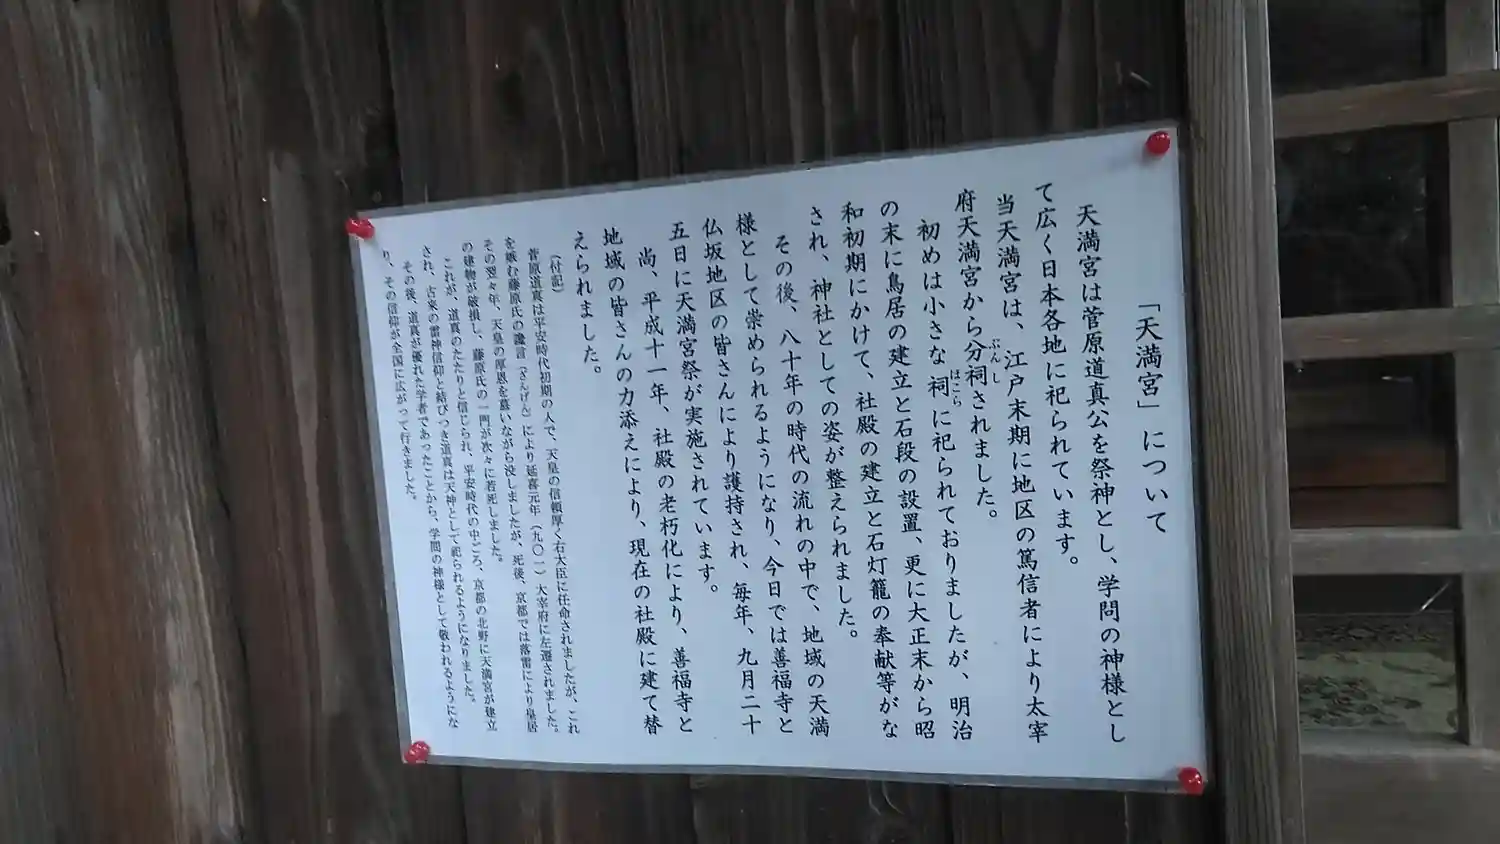 「天満宮」について
天満宮は菅原道真公を祭神とし、学問の神様とし
て広く日本各地に祀られています。
当天満宮は、江戸末期に地区の篤信者により太宰
府天満宮から分祠されました。
ぶんし
初めは小さな祠に祀られておりましたが、明治
ほこら
の末に鳥居の建立と石段の設置、更に大正末から昭
和初期にかけて、社殿の建立と石灯籠の奉献等がな
され、神社としての姿が整えられました。
その後、八十年の時代の流れの中で、地域の天満
様として崇められるようになり、今日では善福寺と
仏坂地区の皆さんにより護持され、毎年、九月二十
五日に天満宮祭が実施されています。
尚、平成十一年、社殿の老朽化により、善福寺と
地域の皆さんの力添えにより、現在の社殿に建て替
えられました。
(付記)
菅原道真は平安時代初期の人で、天皇の信頼厚く右大臣に任命されましたが、これ
を嫉む藤原氏の讒言(ざんげん)により延喜元年(九〇一)大宰府に左遷されました。
その翌々年、天皇の厚恩を慕いながら没しましたが、死後、京都では落雷により皇居
の建物が破損し、藤原氏の一門が次々に若死しました。
これが、道真のたたりと信じられ、平安時代の中ごろ、京都の北野に天満宮が建立
され、古来の雷神信仰と結びつき道真は天神として祀られるようになりました。
その後、道真が優れた学者であったことから、学問の神様として敬われるようにな
り、その信仰が全国に広がって行きました。